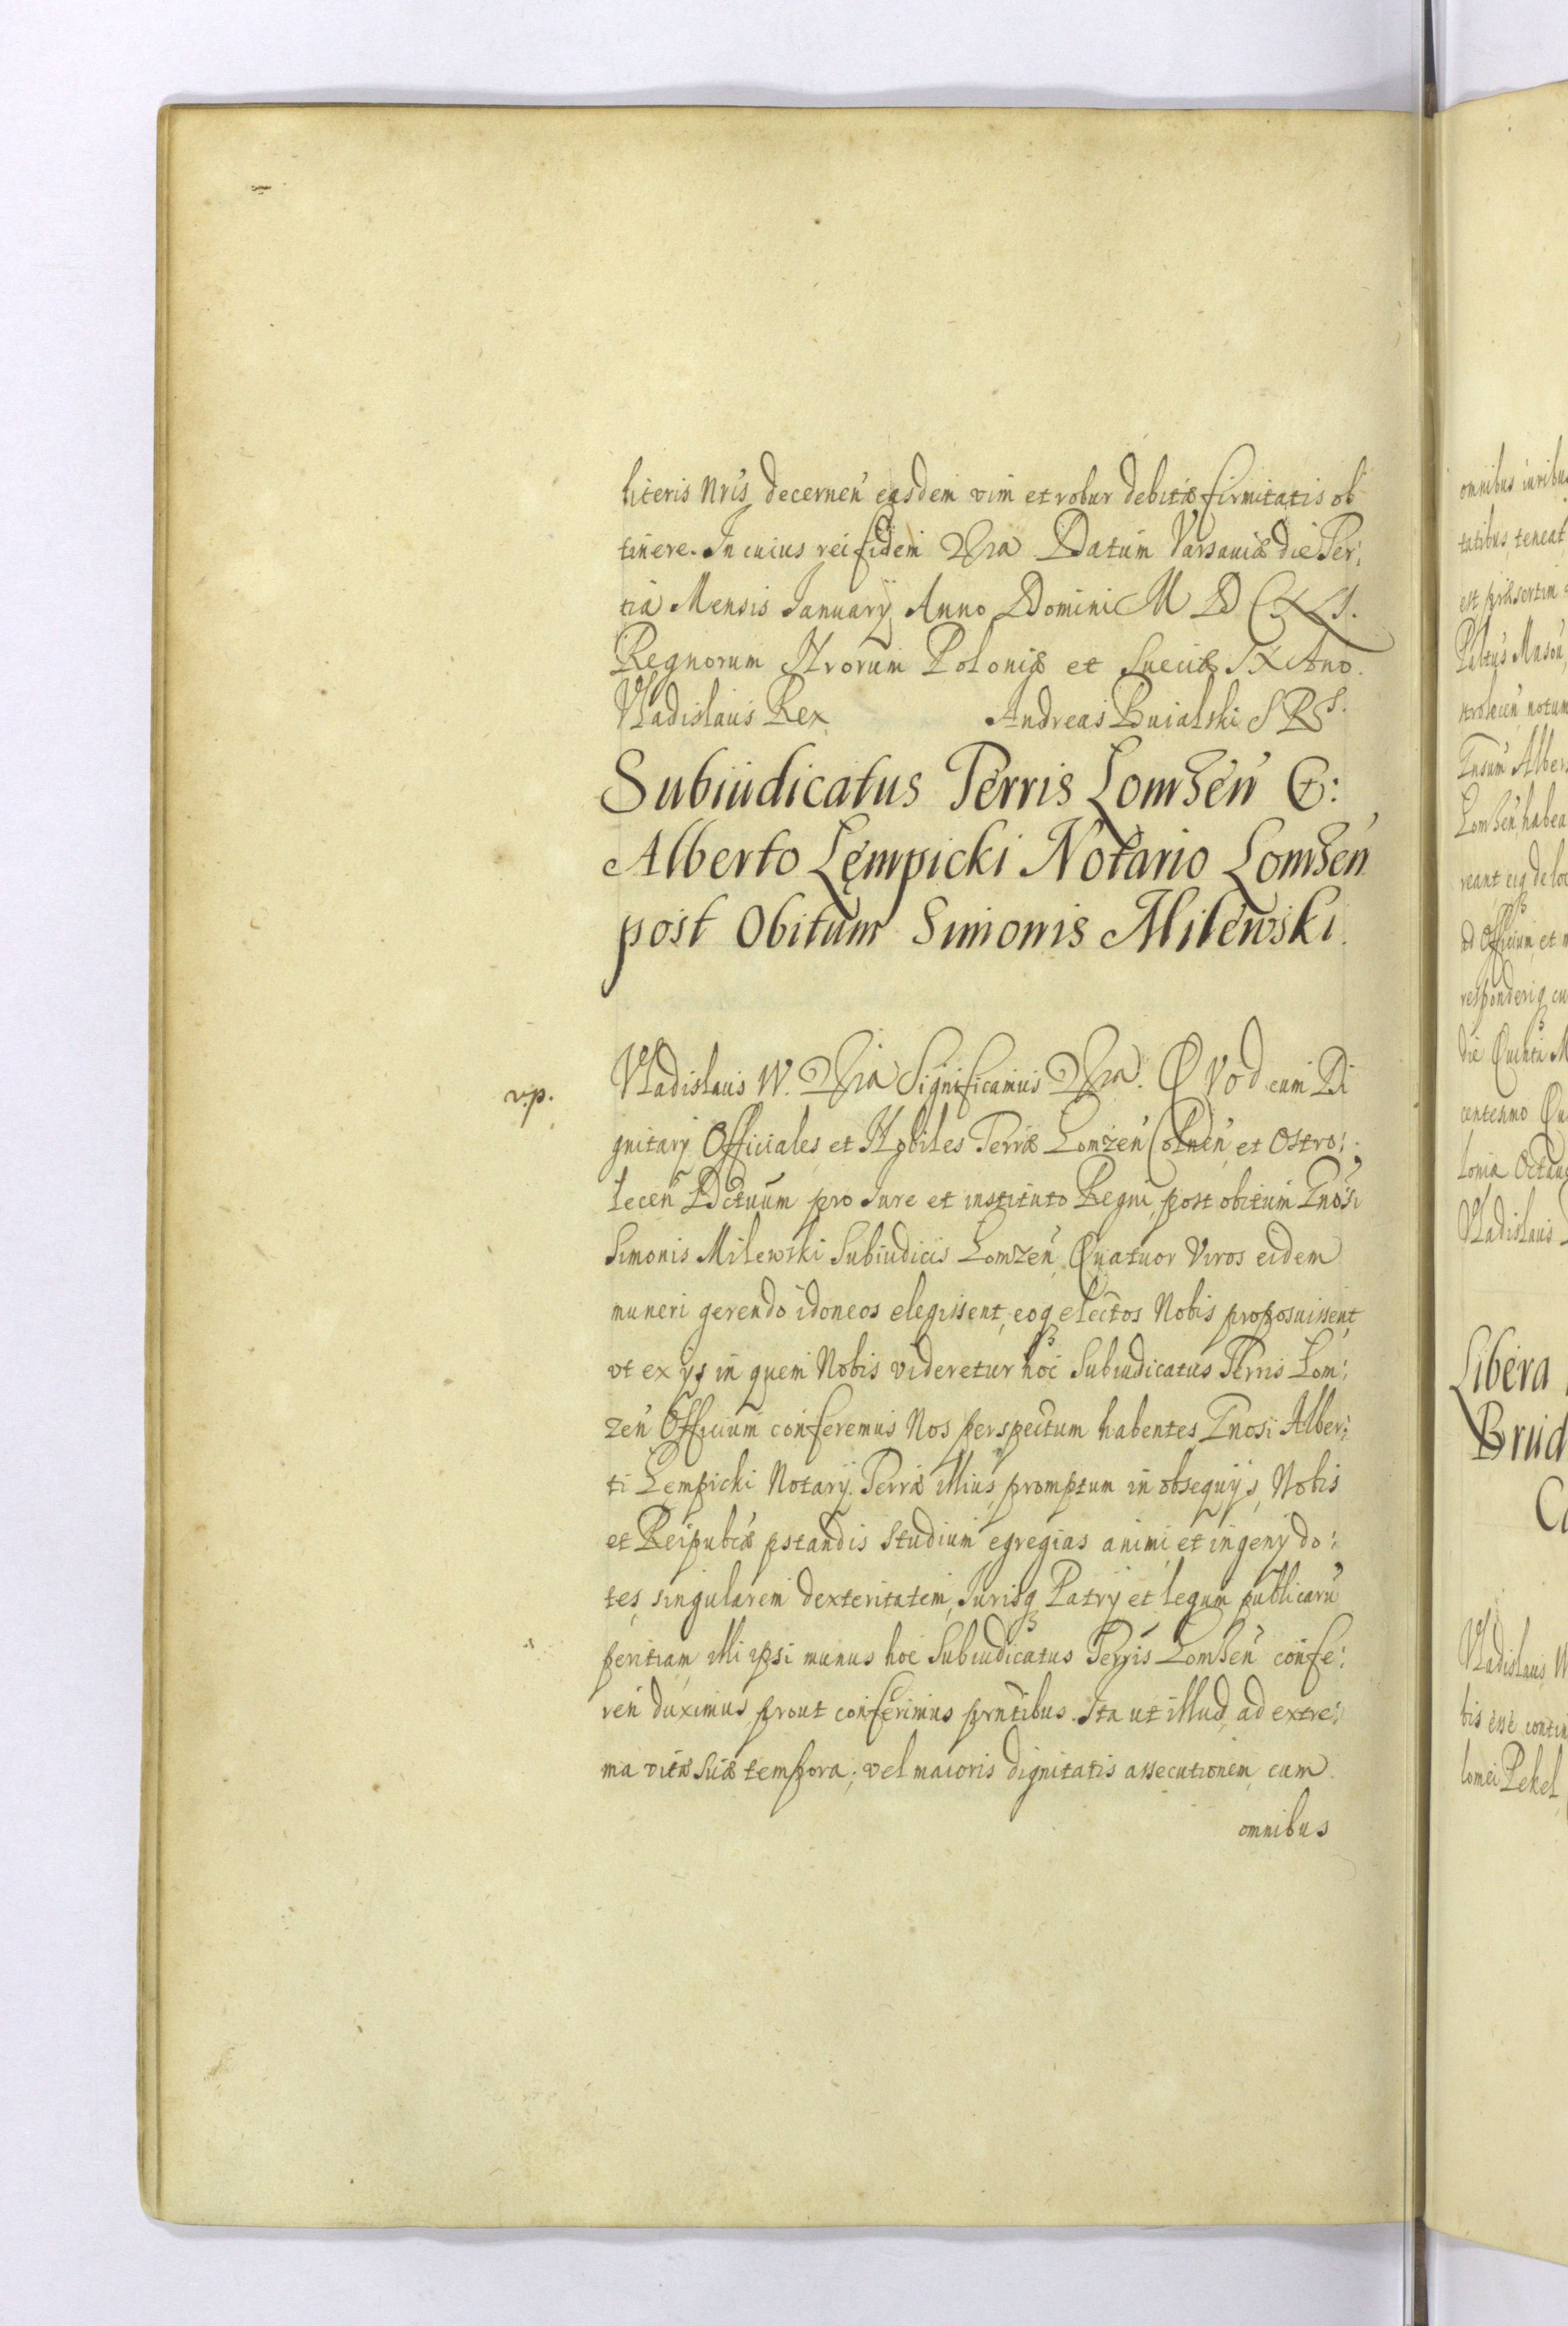 literis Nris decernen easdem vim et robur debitæ firmitatis ob
tinere. In cuius rei fidem &ra Datum Varsauiæ die Ter:
tia Mensis January Anno Domini M D C XLI.
Regnorum Nrorum Poloniæ et Sueciæ IX Ano.
Vladislaus Rex Andreas Buialski S R S.
Subiudicatus Terris Lomzen G:
Alberto Lempicki Notario Lomzen
post Obitum Simonis Milewski.
v.p.
Vladislaus IV. &ra Significamus &ra. QVod cum Di
gnitary Officiales et Nobiles Terræ Lomzen Colnen et Ostro:
lecen Dctuum pro Jure et instituto Regni, post obitum Gnosi
Simonis Milewski Subiudicis Lomzen, Quatuor Viros eidem
muneri gerendo idoneos elegissent, eosq electos Nobis proposuissent
vt ex ys in quem Nobis videretur hoc Subiudicatus Terris Lom:
zen Officium conferemus Nos perspectum habentes Gnosi Alber:
ti Lempicki Notary Terræ illius, promptum in obsequijs Nobis
et Reipubcæ pstandis studium egregias animi et ingeny do:
tes, singularem dexteritatem, Jurisq Patrij et legum publicaru
peritiam, illi ipsi munus hoc Subiudicatus Terris Lomzen confe:
ren duximus prout conferimus prntibus. Ita ut illud ad extre:
ma vitæ suæ tempora, vel maioris dignitatis assecutionem, cum
omnibus
omnibus iuribus
tatibus teneat
est præsertim
notum
Alber
Lomzen habea
reant eiq de loc
ad Officium et
responderiq cu
die Quinta M
centesmo Qu
lonia Octauo
Vladislaus
Libera
Brud
Ca
Vladislaus
bis esse contin
lomei Pekel